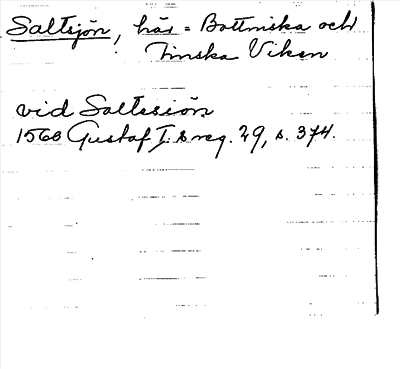 Saltsjön, här = Bottniska och
Finska Viken
vid Saltesiön
1560 Gustaf I:s reg. 29, s. 374.